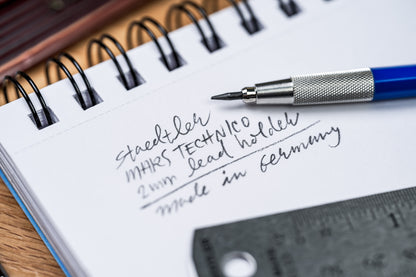 staedtler
MARS TECHNICO
2mm lead holder
made in Germany